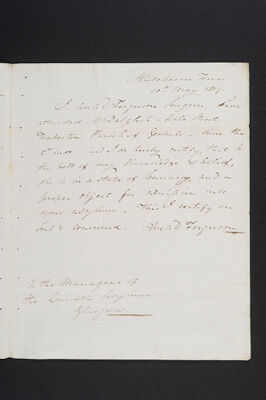 Hutcheson Town
10th May 1819
I Archd Ferguson Surgeon, have
attended Mrs Dalglish - Dale Street
Tradeston Parish of Gorbals - since the
inst and I do hereby certify, that to
the best of my knowledge & belief,
she is in a state of Insanity, and a
proper object for admission into
your asylum. - This I certify on
soul & conscience. Archd Ferguson
To the Managers of
the Lunatic Asylum
Glasgow